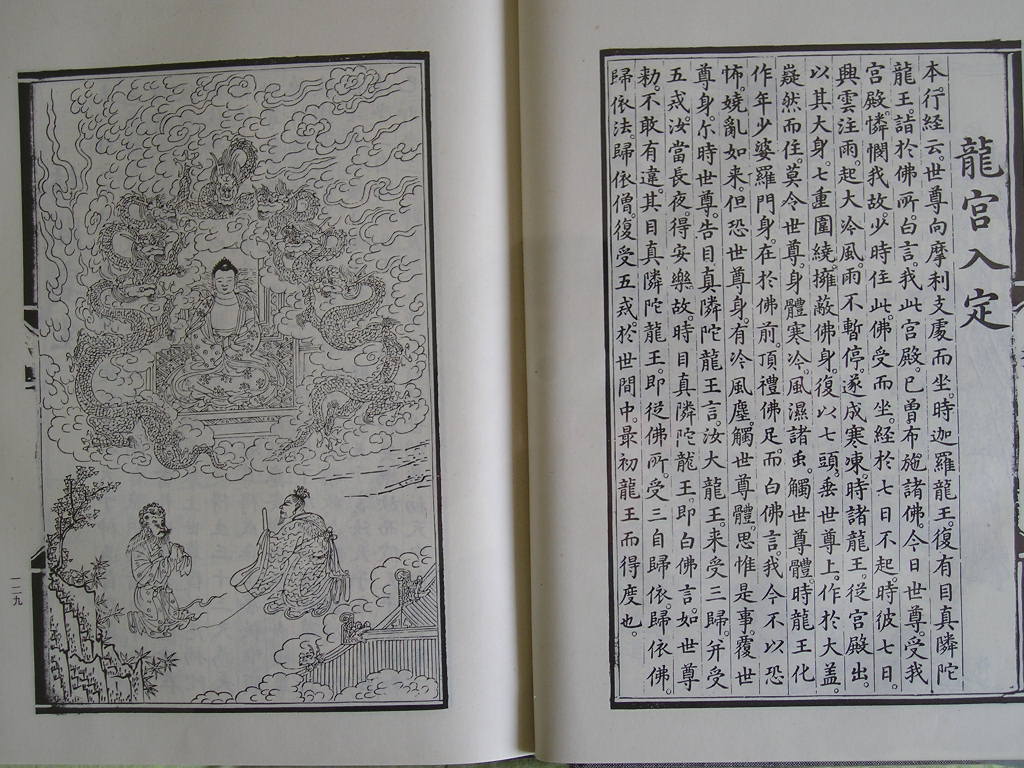 龍宮入定
本行經云。世尊向摩利支處而坐。時迦羅龍王。復有目真隣陀
龍王。詣於佛所。白言。我此宮殿。已曾布施諸佛。今日世尊。受我
宮殿。憐憫我故。少時住此。佛受而坐。經於七日不起。時彼七日。
興雲注雨。起大冷風。雨不暫停。遂成寒凍。時諸龍王。從宮殿出。
以其大身。七重圍繞。擁蔽佛身。復以七頭。垂世尊上。作於大蓋。
嶷然而住。莫令世尊。身體寒冷。風濕諸䖟。觸世尊體。時龍王化
作年少婆羅門身。在於佛前。頂禮佛足。而白佛言。我今不以恐
怖。嬈亂如来。但恐世尊身。有冷風塵。觸世尊體。思惟是事。覆世
尊身。尒時世尊。告目真隣陀龍王言。汝大龍王。来受三歸。并受
五戒。汝當長夜。得安樂故。時目真隣陀龍王。即白佛言。如世尊
勅。不敢有違。其目真隣陀龍王。即從佛所。受三自歸依。歸依佛。
歸依法。歸依僧。復受五戒。於世間中。最初龍王而得度也。
一二九